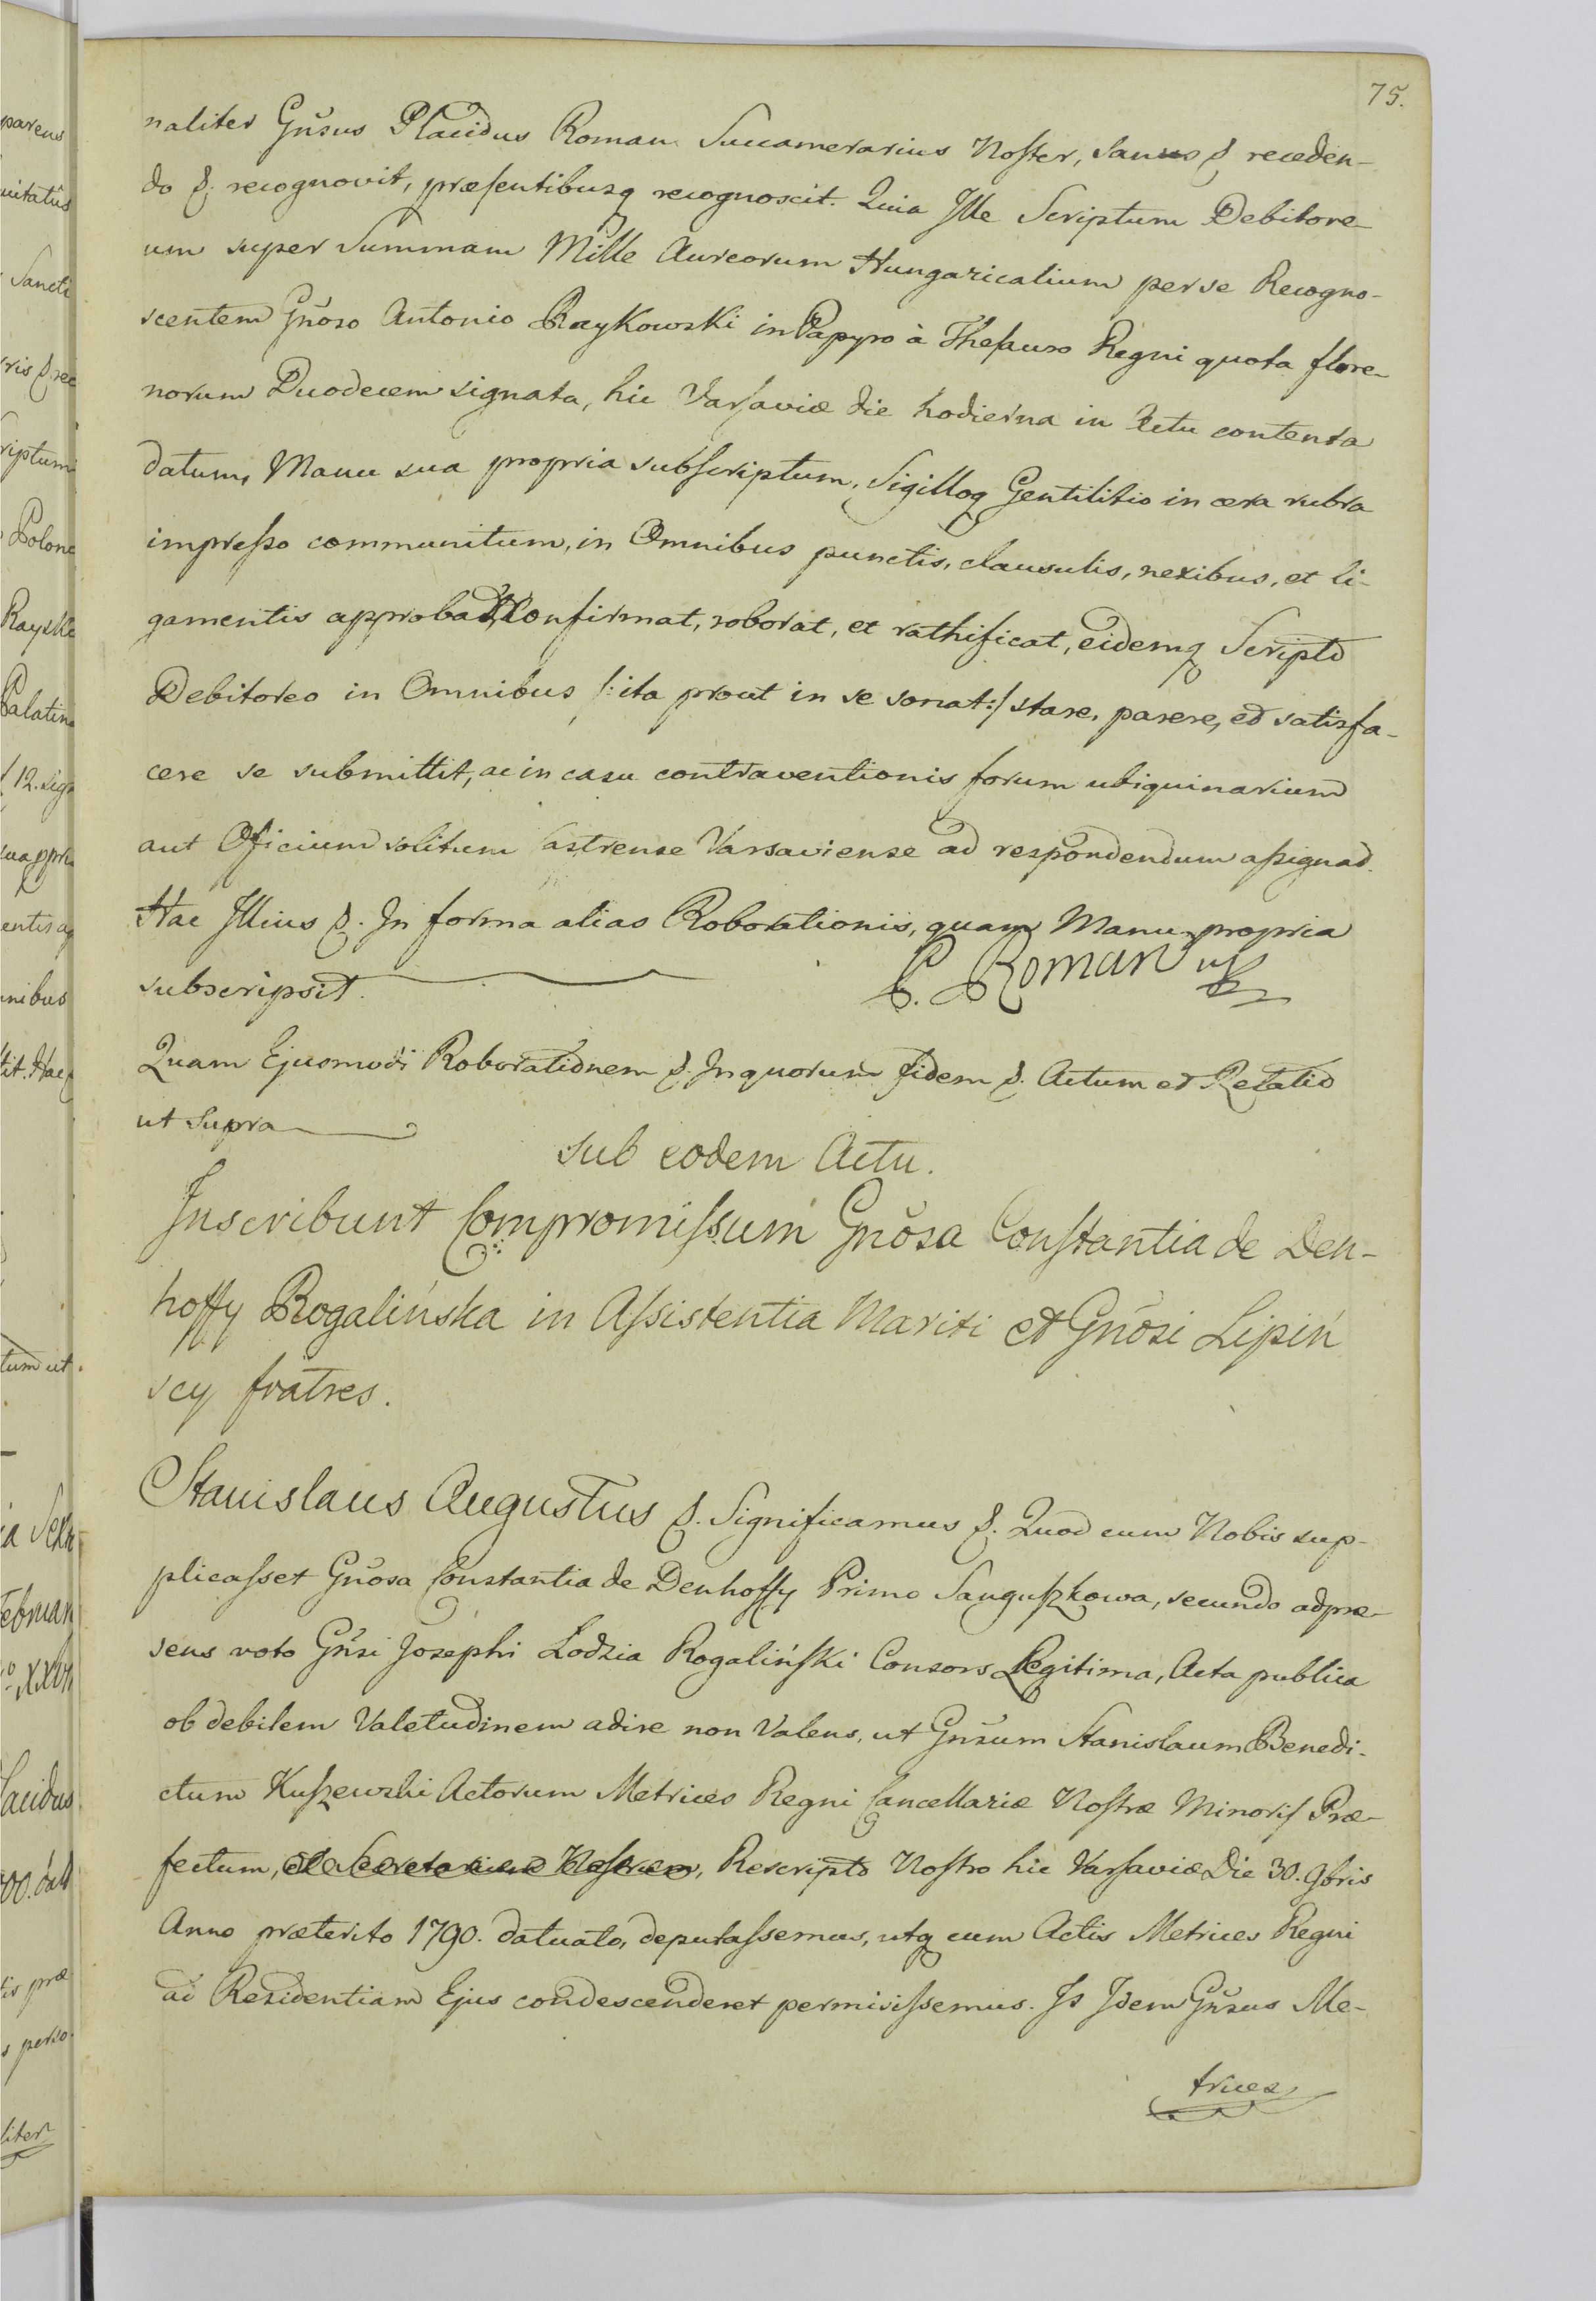 75.
naliter Gnŝus Placidus Roman Succamerarius Noster, sanus &. receden-
do &. recognovit, præsentibusq recognoscit. Quia Ille Scriptum Debitore-
um super Summam Mille Aureorum Hungaricalium per se Recogno-
scentem Gnŏso Antonio Raykowski in Papyro à Thesauro Regni quota flore-
norum Duodecem signata, hic Varsaviæ die hodierna in Actu contenta
datum, Manu sua propria subscriptum, Sigilloq Gentilitio in cera rubra
impresso communitum, in Omnibus punctis, clausulis, nexibus, et li-
gamentis approbat, Confirmat, roborat, et rathificat, eidemq Scripto
Debitoreo in Omnibus /:ita prout in se sonat:/ stare, parere, et satisfa-
cere se submittit, ac in casu contraventionis forum ubiquinarium
aut Officium solitum Castrense Varsaviense ad respondendum assignat.
Hac Illius &. In forma alias Roborationis, quam Manu propria
subscripsit.
P. Roman
Quam Ejusmodi Roborationem &. In quorum fidem &. Actum et Relatio
ut Supra
Sub eodem Actu.
Inscribunt Compromissum Gnŏsa Constantia de Den-
hoffy Rogalińska in Assistentia Mariti et Gnŏsi Lipiń
scy fratres.
Stanislaus Augustus &. Significamus &. Quod cum Nobis sup-
plicasset Gnŏsa Constantia de Denhoffy Primo Sanguszkowa, secundo ad præ-
sens voto Gnŝi Josephi Łodzia Rogaliński Consors Legitima, Acta publica
ob debilem Valetudinem adire non Valens, ut Gnŝum Stanislaum Benedi-
ctum Kuszewski Actorum Metrices Regni Cancellariæ Nostræ Minoris Præ-
fectum, et Secretarium Nostrum, Rescripto Nostro hic Varsaviæ Die 30. 9bris
Anno præterito 1790. datuato, deputassemus, utq cum Actis Metrices Regni
ad Residentiam Ejus condescenderet permisissemus. Is Idem Gnŝus Me-
trices